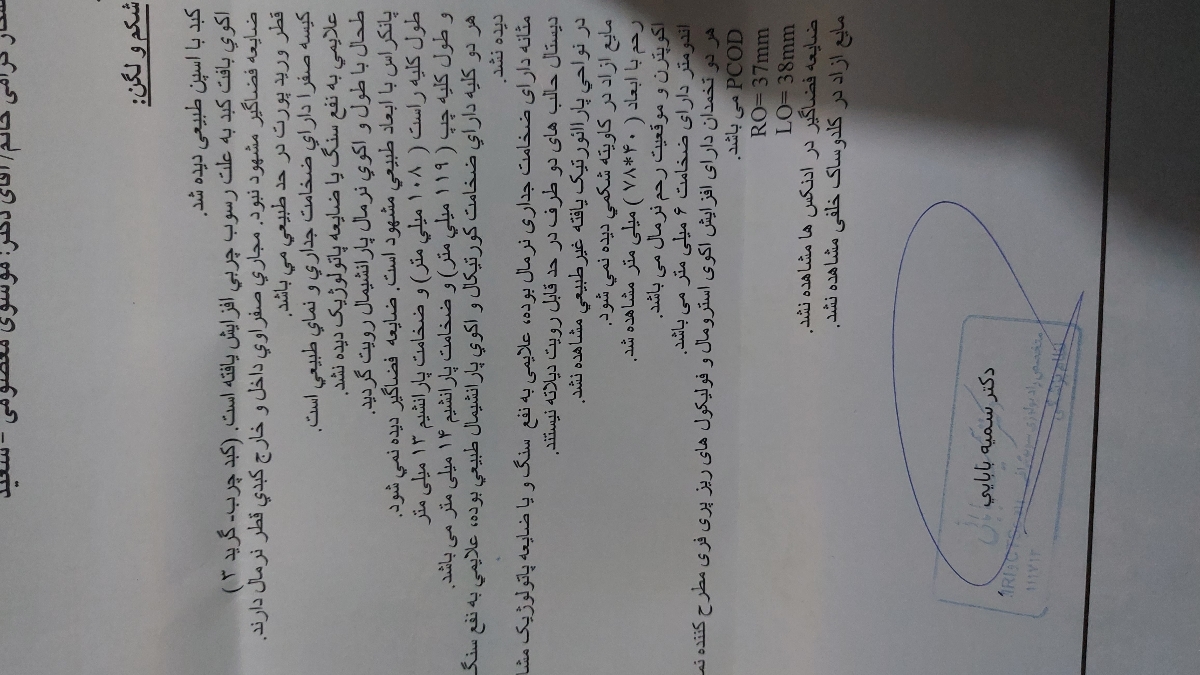 همکار گرامی خانم/ آقای دکتر: موسوی معصومی -سعید
شکم و لگن:
کبد با اسپن طبیعی دیده شد.
اکوی بافت کبد به علت رسوب چربی افزایش یافته است. (کبد چرب- گرید ۳ )
ضایعه فضاگیر مشهود نبود. مجاری صفراوی داخل و خارج کبدی قطر نرمال دارند.
قطر ورید پورت در حد طبیعی می باشد.
کیسه صفرا دارای ضخامت جداری و نمای طبیعی است.
علایمی به نفع سنگ یا ضایعه پاتولوژیک دیده نشد.
طحال با طول و اکوی نرمال پارانشیمال رویت گردید.
پانکراس با ابعاد طبیعی مشهود است. ضایعه فضاگیر دیده نمی شود.
طول کلیه راست ( ۱۰۸ میلی متر) و ضخامت پارانشیم ۱۳ میلی متر
و طول کلیه چپ ( ۱۱۹ میلی متر) و ضخامت پارانشیم ۱۴ میلی متر می باشد.
هر دو کلیه دارای ضخامت کورتیکال و اکوی پارانشیمال طبیعی بوده، علایمی به نفع سنگ
دیده نشد.
مثانه دارای ضخامت جداری نرمال بوده، علایمی به نفع سنگ و یا ضایعه پاتولوژیک مشا
دیستال حالب های دو طرف در حد قابل رویت دیلاته نیستند.
در نواحی پارائورتیک یافته غیرطبیعی مشاهده نشد.
مایع آزاد در کاویته شکمی دیده نمی شود.
رحم با ابعاد ( ۴۰*۷۸ ) میلی متر مشاهده شد.
اکوپترن و موقعیت رحم نرمال می باشد.
اندومتر دارای ضخامت ۶ میلی متر می باشد.
هر دو تخمدان دارای افزایش اکوی استرومال و فولیکول های ریز پری فری مطرح کننده نم
PCOD می باشد.
RO= 37mm
LO= 38mm
ضایعه فضاگیر در ادنکس ها مشاهده نشد.
مایع ازاد در کلدوساک خلفی مشاهده نشد.
دکتر سمیه بابایی